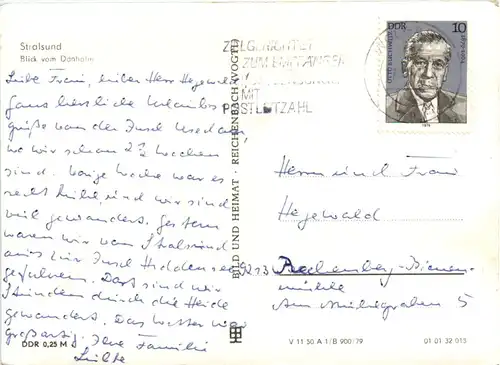 Stralsund
Blick vom Dänholm
Liebe Frau, lieber Herr Hegewald
Ganz herzliche Urlaubs-
grüße von der Insel Usedom,
wo wir schon 2½ Wochen
sind. Vorige Woche war es
recht kühl und wir sind
viel gewandert. Gestern
waren wir von Stralsund
aus zur Insel Hiddensee
gefahren. Dort sind wir
Stunden durch die Heide
gewandert. Das Wetter war
großartig. Ihre Familie
DDR 0,25 M
BILD UND HEIMAT · REICHENBACH (VOGTL)
ZIELGERICHTET
ZUM EMPFÄNGER
MIT
POSTLEITZAHL
DDR 10
OTTO BUCHWITZ
1879-1964
1979
Herrn und Frau
Hegewald
9213 Rechenberg-Bienen-
mühle
Am Mühlgraben 5
V 11 50 A 1/B 900/79
01 01 32 013